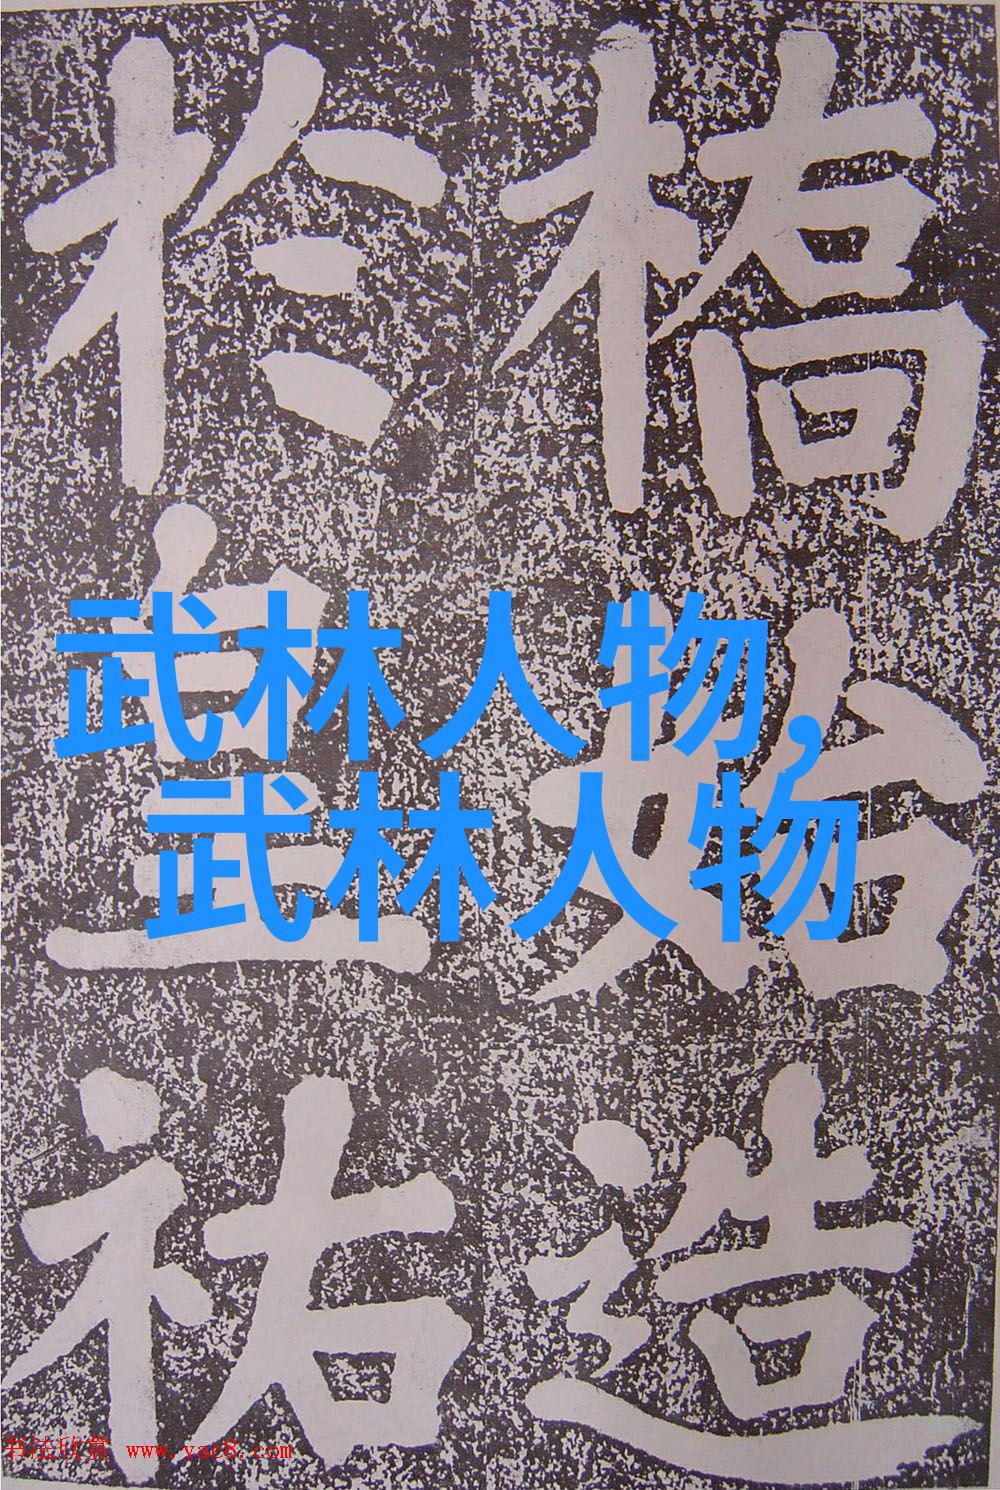 橋始造
於皇祐
武林人物,
武林人物
书法欣赏 www.yac8.com